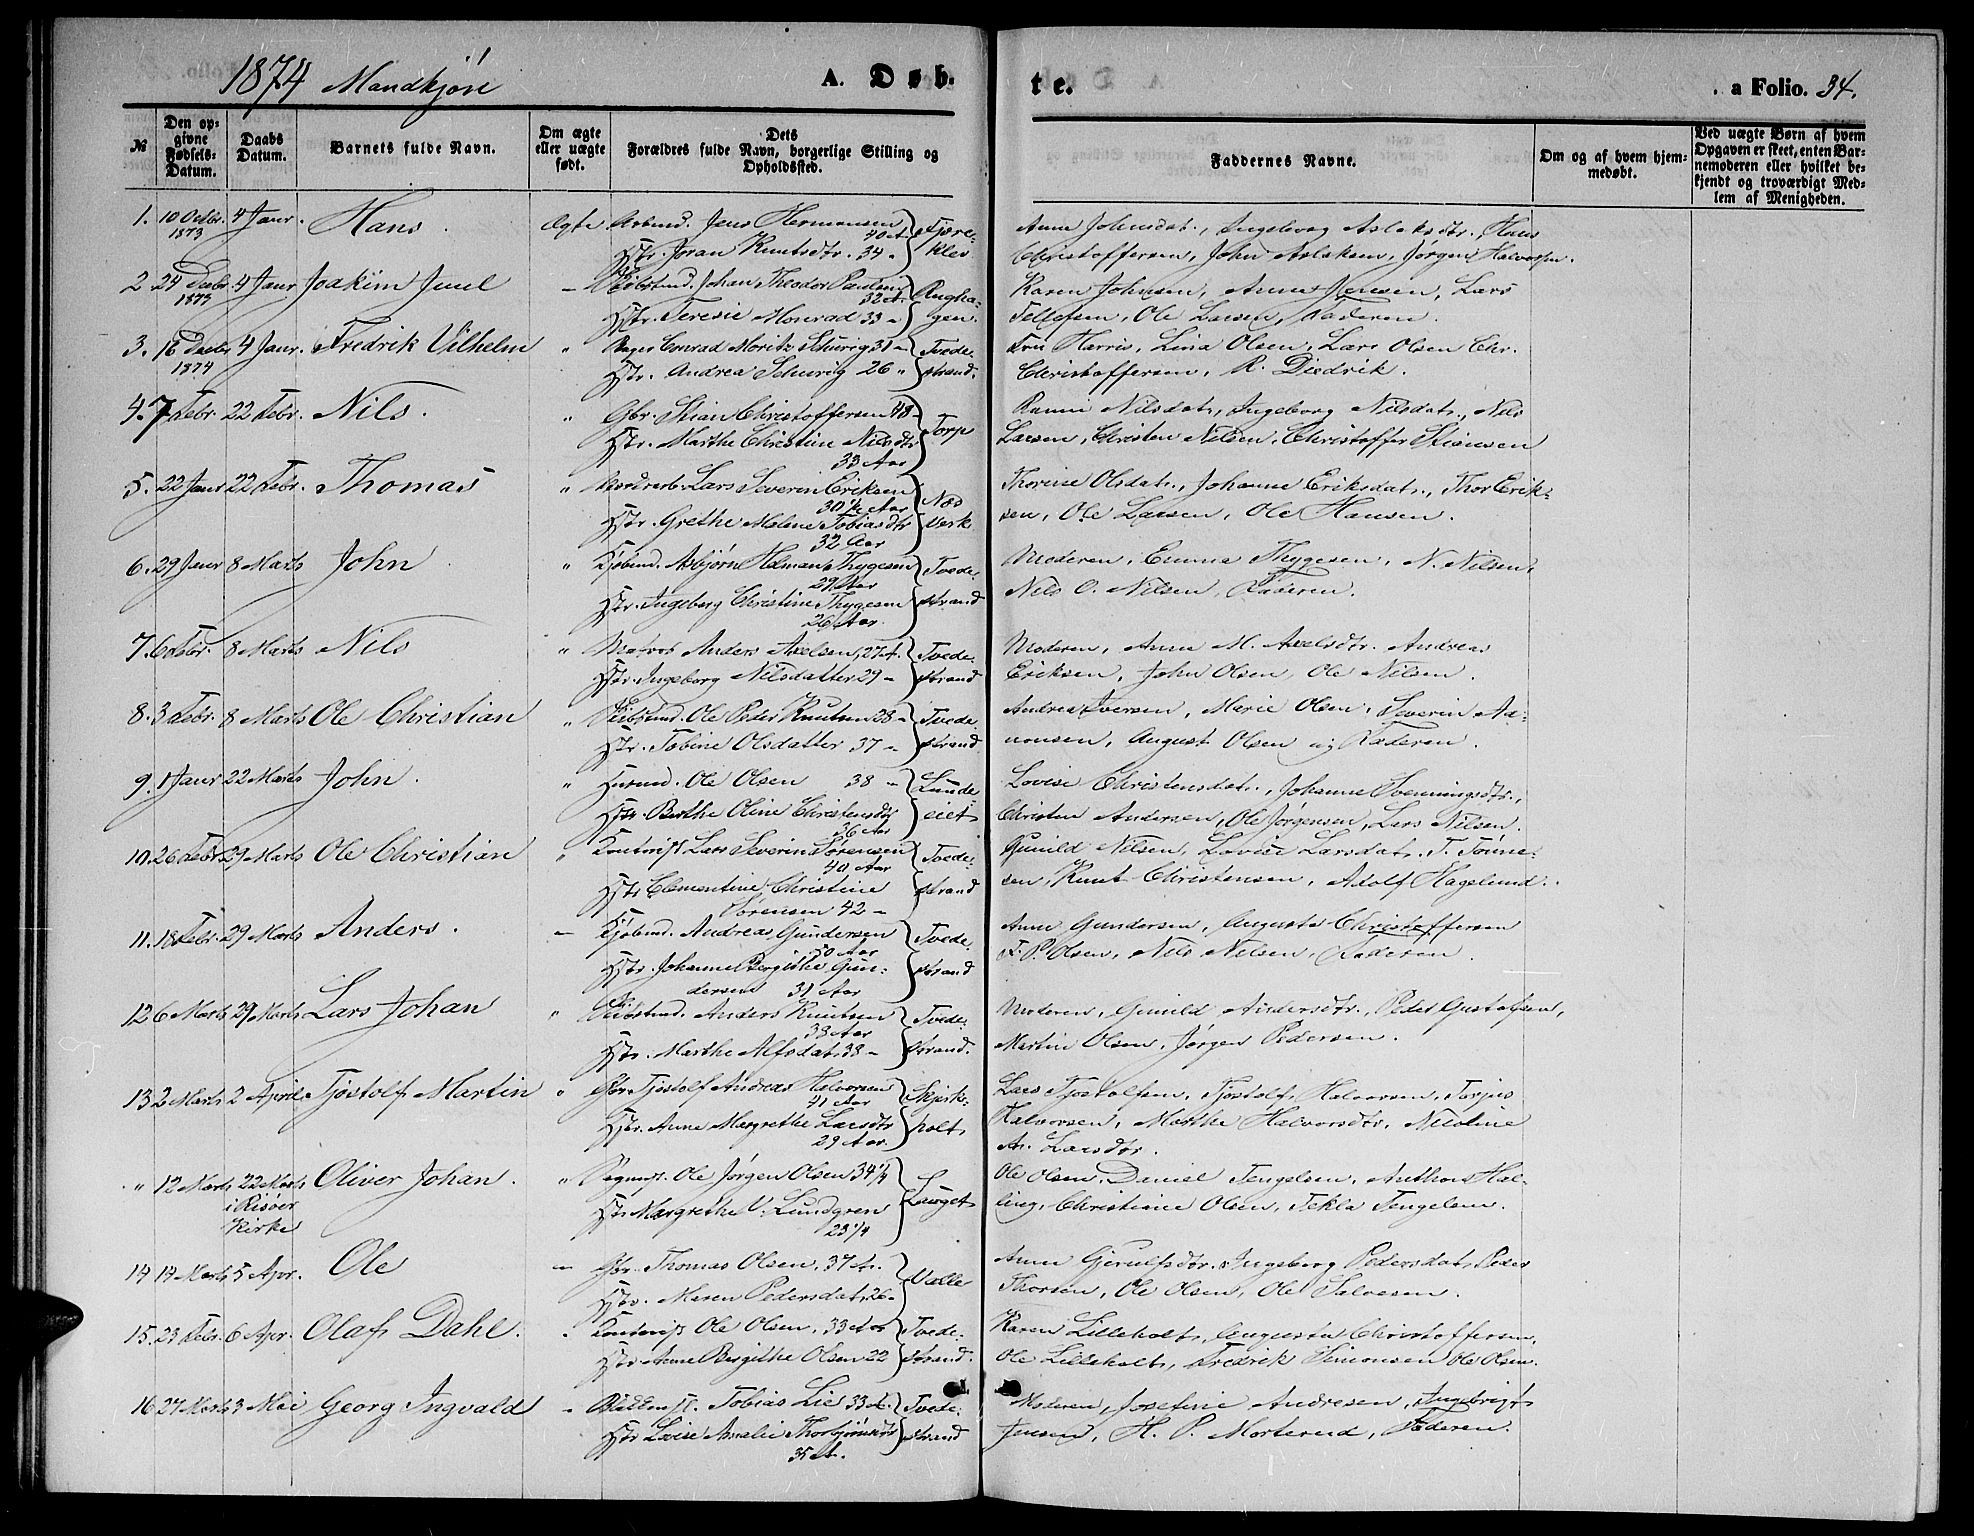 1874 Mandkjøn
A. Døb-
te.
a Folio. 34.
№
Den op-
givne
Fødsels-
Datum.
Daabs
Datum.
Barnets fulde Navn.
Om ægte
eller uægte
født.
Dets
Forældres fulde Navn, borgerlige Stilling og
Opholdssted.
Faddernes Navne.
Om og af hvem hjem-
medøbt.
Ved uægte Børn af hvem
Opgaven er skeet, enten Bar-
nemoderen eller hvilket be-
kjendt og troværdigt Med-
lem af Menigheden.
1. 10 Octbr. 4 Janr. Hans. Ægte Arbmd. Jens Hermansen
1873 40 A.
Hstr. Joran Knutsdtr. 34 -
Fjære-
klev
Anne Johnsdat., Ingeborg Aslaksdtr., Hans
Christoffersen, John Aslaksen, Jørgen Halvorsen.
2 24 Decbr. 4 Janr Joakim Juul - Johan Theodor Paulsen
1873 32 A.
Hstr. Teresie Monrad 33 -
gen.
Karen Johnsen, Anne Jensen, Lars
Tellefsen, Ole Larsen, Faderen.
3. 16 Decbr 4 Janr. Fredrik Vilhelm " Bager Conrad Moritz Schurig 31 -
1874
Hstr. Andrea Schurig 26 "
Tvede-
strand.
Fru Harris, Lina Olsen, Lars Olsen Chr.
Christoffersen, R. Diedrik.
4. 7 Febr. 22 Febr. Nils. " Gbr. Stian Christoffersen 48 -
Hstr. Marthe Christine Nilsdtr
33 Aar
Torp
Nilsdat., Ingeborg Nilsdat., Nils
Larsen, Christen Nilsen, Christoffer Stiansen
5. 22 Janr 22 Febr. Thomas " Lars Severin Eriksen
30 1/2 Aar
Hstr. Grethe Malene Tobiasdtr
32 Aar
Næs
Værk
Thorine Olsdat., Johanne Eriksdat., Thor Erik-
sen, Ole Larsen, Ole Hansen.
6. 29 Janr 8 Marts John " Kjøbmd. Asbjørn Helman Thygesen
29 Aar
Hstr. Ingeborg Christine Thygesen
26 Aar.
Tvede-
strand
Moderen, Emma Thygesen, N. Nilsen,
Nils O. Nilsen, Faderen.
7. 6 Febr. 8 Marts Nils " Matros Anders Axelsen, 27 A.
Hstr. Ingeborg Nilsdatter 29 -
Tvede-
strand
Moderen, Anne M. Axelsdtr. Andreas
Eriksen, John Olsen, Ole Nilsen.
8. 3 Febr. 8 Marts Ole Christian " Ole Peder Knutsen 28 -
Hstr. Tobine Olsdatter 37 -
Tvede-
strand.
Andrea Iversen, Marie Olsen, Severin Aa-
nonsen, August Olsen og Faderen.
9. 1 Janr 22 Marts John. " Husmd. Ole Olsen 38 -
Hstr Berthe Oline Christensdtr
36 Aar
Lunde
eiet
Lovise Christensdat., Johanne Svenningsdtr.,
Christen Andersen, Ole Jørgensen, Lars Nilsen.
10. 26 Febr 29 Marts Ole Christian " Kontorist Lars Severin Sørensen
40 Aar
Hstr Clementine Christine
Sørensen 42 -
Tvede-
strand
Gunild Nilsen, Lovise Larsdat. T. Tønne-
sen, Knut Christensen, Adolf Hagelund.
11. 18 Febr. 29 Marts Anders. - Kjøbmd. Andreas Gundersen
50 Aar
Hstr. Johanne Bergithe Gun-
dersen 31 Aar
Tvede-
strand
Anne Gundersen, Augusta Christoffersen
F. P. Olsen, Nils Nilsen, Faderen.
12 6 Marts 29 Marts Lars Johan " Anders Knutsen
33 Aar
Hstr. Marthe Alfsdat. 38 -
Tvede-
strand.
Moderen, Gunild Andersdtr., Peder Gustafsen,
Martin Olsen, Jørgen Pedersen.
13 2 Marts 2 April Tjøstolf Martin " Gbr. Tjøstolf Andreas Halvorsen
41 Aar
Hstr. Anne Margrethe Larsdtr
29 Aar.
Skjirk-
holt
Lars Tjøstolfsen, Tjøstolf Halvorsen, Torjus
Halvorsen, Marthe Halvorsdtr, Nicoline
An. Larsdtr.
" 12 Marts 22 Marts Oliver Johan. " Ole Jørgen Olsen 34 1/4
i Risøer
Kirke
Hstr Margrethe V. Lundgren
23 1/4
Lauget
Ole Olsen, Daniel Tengelsen, Anthon Hal-
ling, Christiane Olsen, Tekla Tengelsen.
14 14 Marts 5 Apr. Ole - Gbr. Thomas Olsen, 37 A.
Hstr. Maren Pedersdat. 26 -
Valle
Anne Gjerulfsdtr., Ingeborg Pedersdat. Peder
Thorsen, Ole Olsen, Ole Salvesen.
15. 23 Febr. 6 Apr. Olaf Dahl. - Kontorist Ole Olsen, 33 Aar
Hstr. Anne Bergithe Olsen 22
Tvede-
strand.
Karen Lilleholt, Augusta Christoffersen,
Ole Lilleholt, Fredrik Simonsen Ole Olsen.
16 27 Marts 3 Mai Georg Ingvald - Tobias Lie 33 A.
Hstr Lovise Amalie Thorbjørnsdtr
35 A.
Tvede-
strand
Moderen, Josefine Andresen, Ingebrigt
Jensen, H. P. Morterud, Faderen.